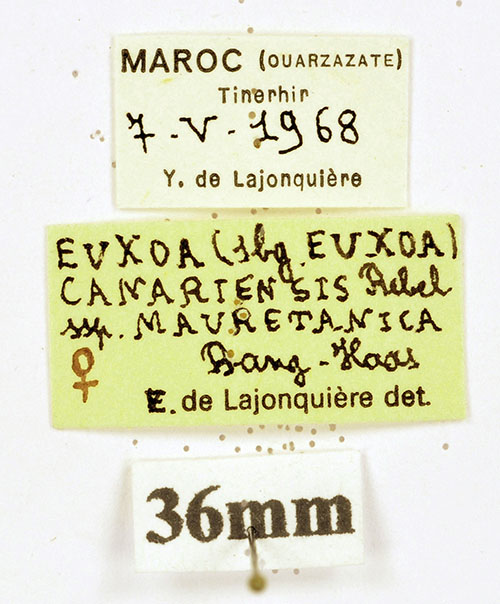 MAROC (OUARZAZATE)
Tinerhir
7-V-1968
Y. de Lajonquière
EUXOA (sbg. EUXOA)
CANARIENSIS Rebel
ssp. MAURETANICA
♀ Bang-Haas
E. de Lajonquière det.
36mm